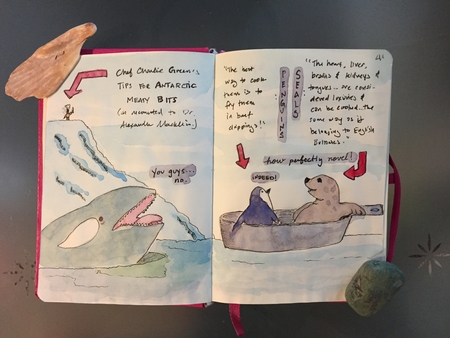 Chef Charlie Green's
TIPS FOR ANTARCTIC
MEATY BITS
(as recounted to Dr.
Alexander Macklin)
YOU GUYS...
NO.
"The best
way to cook
them is to
fry them
in beef
drippings."
PENGUINS
SEALS
"The heart, liver,
brains & kidneys &
tongues... are consi-
dered luxuries &
can be cooked the
same way as it
belonging to English
how perfectly novel!
INDEED!